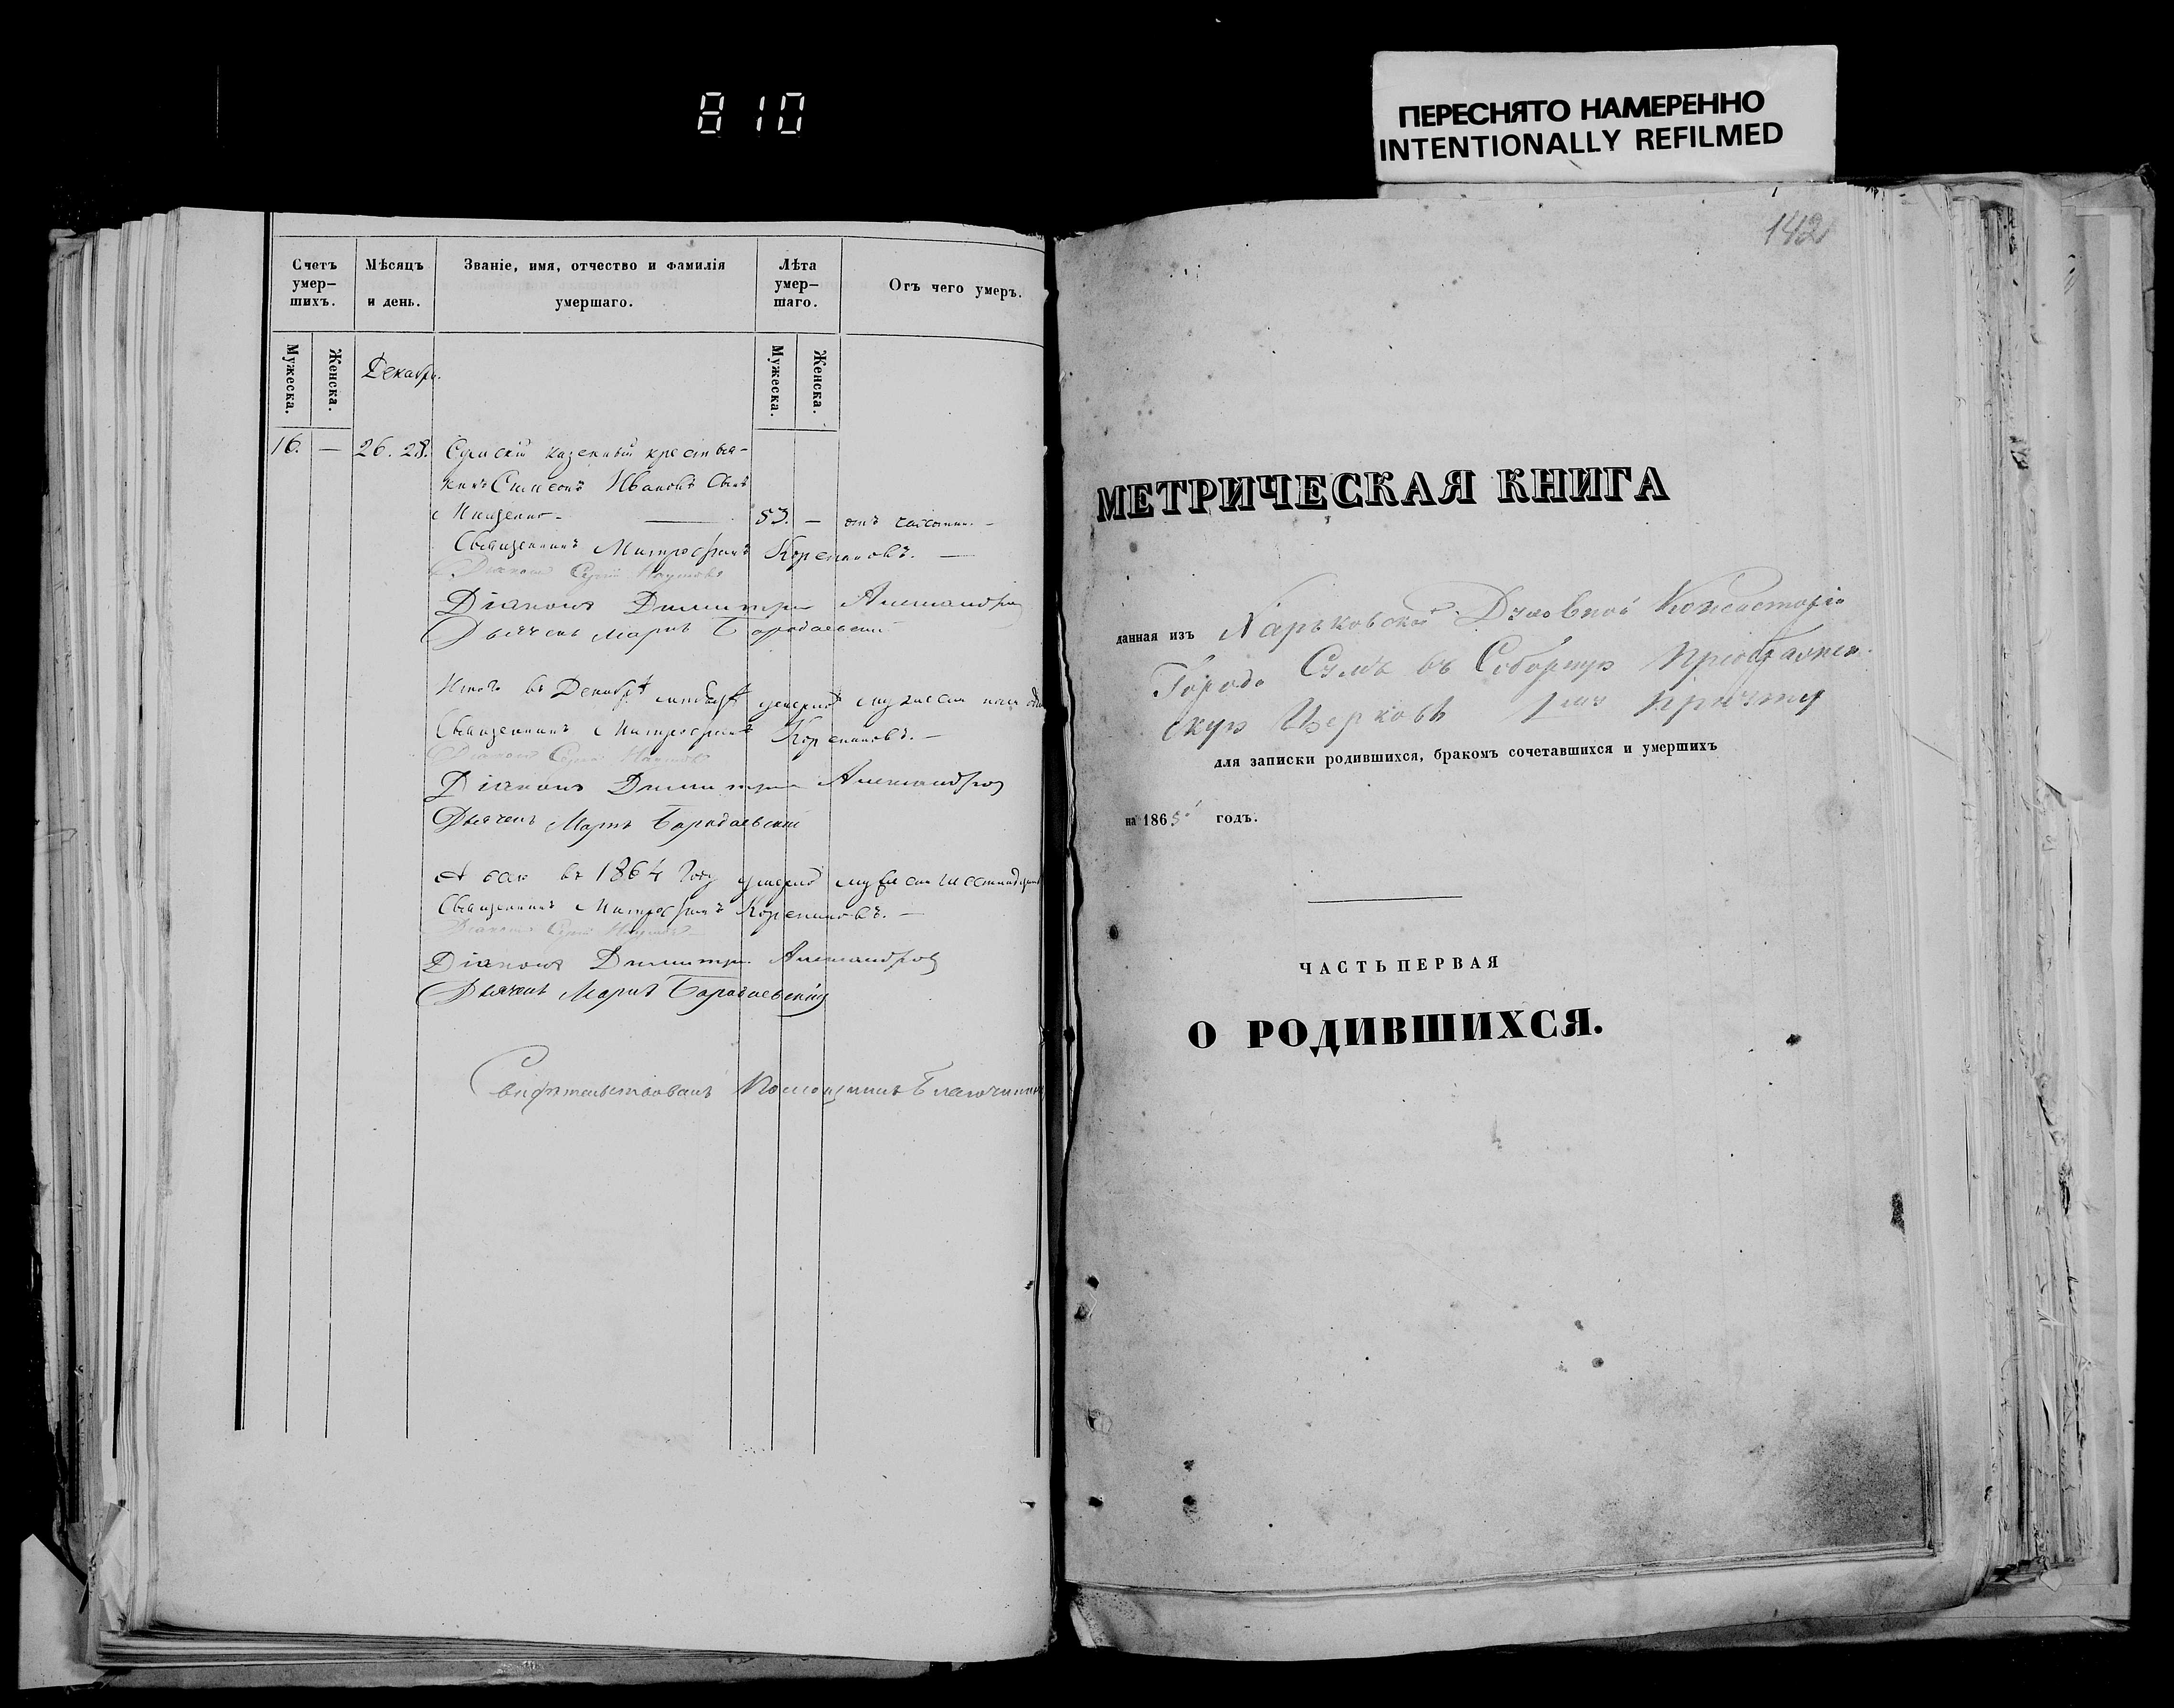 810
ПЕРЕСНЯТО НАМЕРЕННО
INTENTIONALLY REFILMED
Счетъ умер-шихъ.
Мѣсяцъ и день.
Званіе, имя, отчество и фамилія умершаго.
Лѣта умер-шаго.
Отъ чего умеръ.
Мужеска.
Женска.
Мужеска.
Женска.
Декабрь.
16. — 26. 28. Сумскій казенный крестья-
нинъ Симеонъ Ивановъ Сынъ
53. — отъ
Священникъ Митрофанъ
Діаконъ Сергій Наумовъ
Діаконъ Димитрій Александровъ
Дьячекъ Маркъ Бородаевскій
Итого въ Декабрѣ умерло мужеска пола
Священникъ Митрофанъ
Діаконъ Сергій Наумовъ
Діаконъ Димитрій Александровъ
Дьячекъ Маркъ Бородаевскій
А всѣхъ въ 1864 году умерло мужеска шестнадцать
Священникъ Митрофанъ
Діаконъ Сергій Наумовъ
Діаконъ Димитрій Александровъ
Дьячекъ Маркъ Бородаевскій
Свидѣтельствовалъ Помощникъ Благочиннаго
142
МЕТРИЧЕСКАЯ КНИГА
данная изъ Харьковской Духовной Консисторіи
Города Сумъ въ Соборную Преображен-
скую Церковь 1му Причту
для записки родившихся, бракомъ сочетавшихся и умершихъ
на 1865 годъ.
ЧАСТЬ ПЕРВАЯ
О РОДИВШИХСЯ.